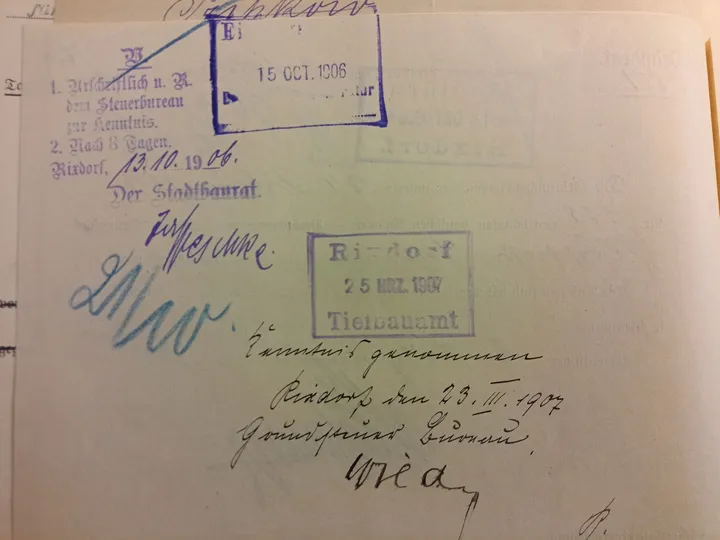 V.
1. Urschriftlich u. R.
dem Steuerbureau
zur Kenntnis.
2. Nach 8 Tagen.
Rixdorf, 13.10.1906.
Der Stadtbaurat.
Ei
15 OCT. 1906
21/10.
Rixdorf
25 MRZ. 1907
Tiefbauamt
Kenntnis genommen
Rixdorf den 23. III. 1907
Grundsteuer Bureau
Wied